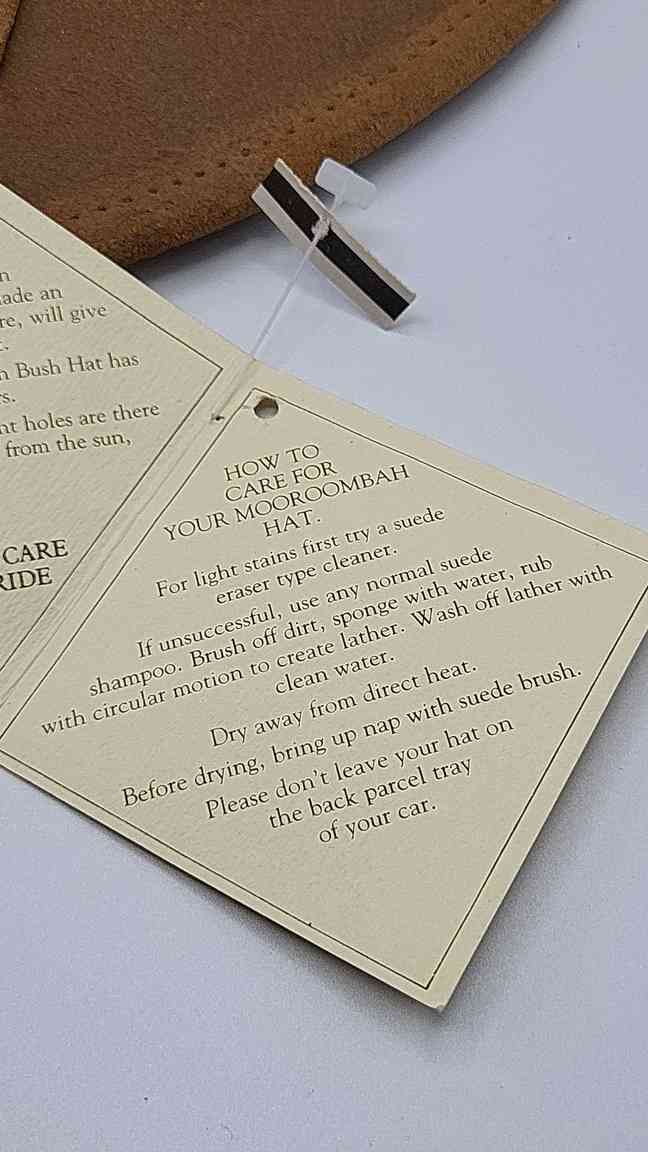 ade an
re, will give
Bush Hat has
holes are there
from the sun,
CARE
HOW TO
CARE FOR
YOUR MOOROOMBAH
HAT.
For light stains first try a suede
eraser type cleaner.
If unsuccessful, use any normal suede
shampoo. Brush off dirt, sponge with water, rub
with circular motion to create lather. Wash off lather with
clean water.
Dry away from direct heat.
Before drying, bring up nap with suede brush.
Please don't leave your hat on
the back parcel tray
of your car.